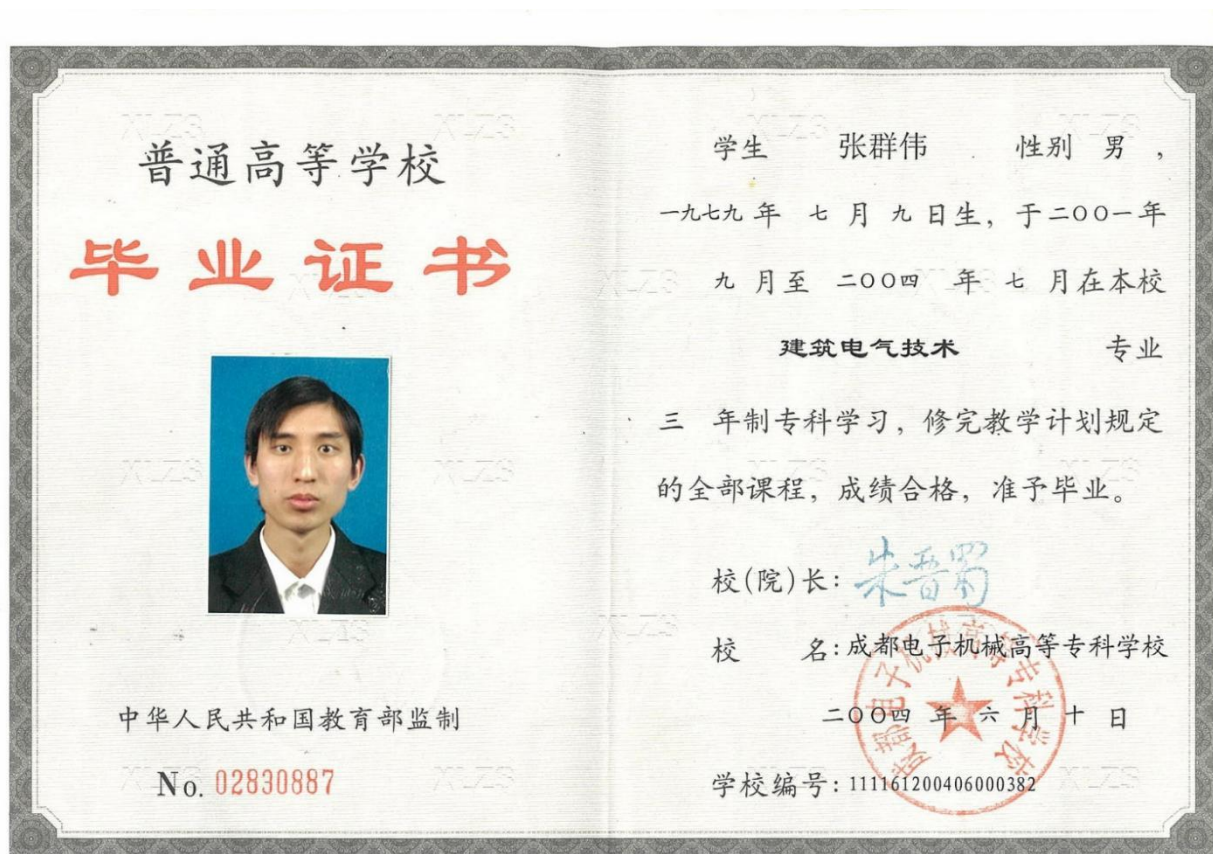 普通高等学校
毕业证书
中华人民共和国教育部监制
No. 02830887
学生 张群伟 性别 男,
一九七九年 七月九日生, 于二〇〇一年
九月至 二〇〇四 年 七 月在本校
建筑电气技术 专业
三 年制专科学习, 修完教学计划规定
的全部课程, 成绩合格, 准予毕业。
校(院)长: 朱晋蜀
校 名: 成都电子机械高等专科学校
二〇〇四 年 六 月 十 日
学校编号: 111161200406000382
成都电子机械高等专科学校
XLZS